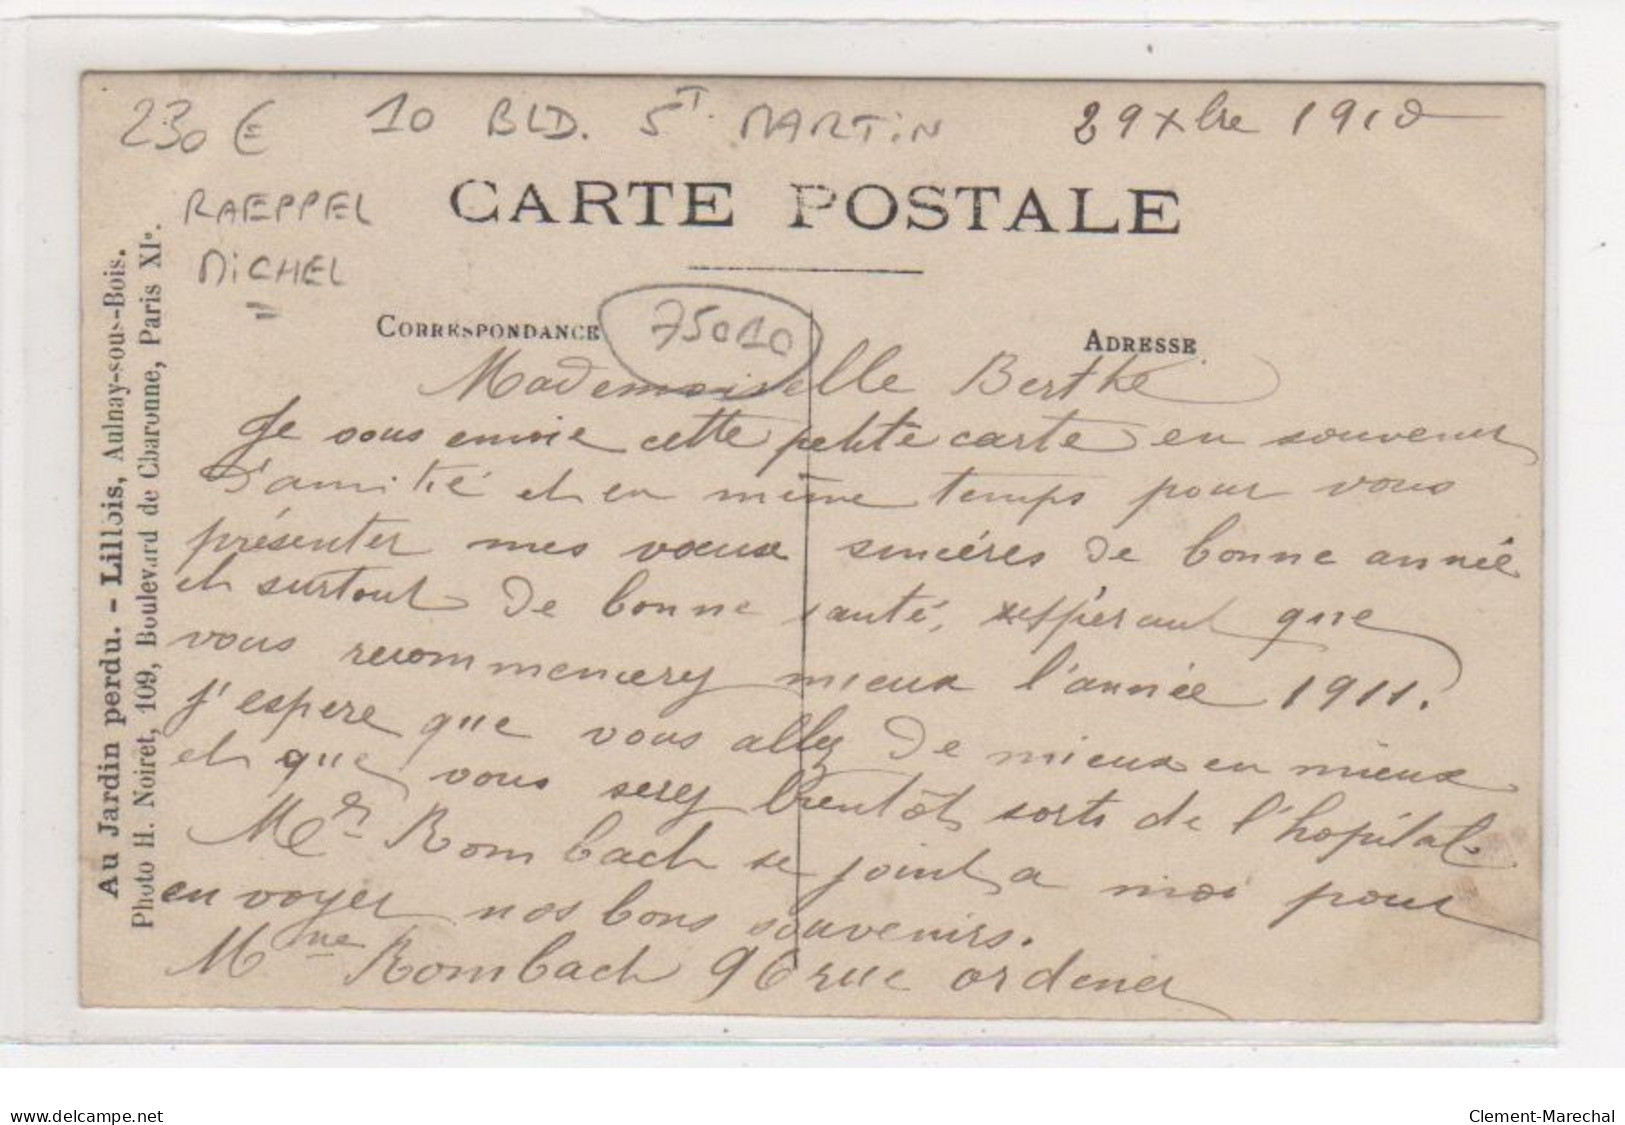 230 € 10 BLD. ST. MARTIN 29 Xbre 1910
RAEPPEL
MICHEL
CARTE POSTALE
CORRESPONDANCE
75010
ADRESSE
Mademoiselle Berthe
Je vous envoie cette petite carte en souvenir
d'amitié et en même temps pour vous
présenter mes vœux sincéres de bonne année
et surtout de bonne santé, espérant que
vous recommencerez mieux l'année 1911.
j'espere que vous allez de mieux en mieux
et que vous serez bientôt sorti de l'hopital.
Mr Rombach se joint a moi pour
envoyer nos bons souvenirs.
Mme Rombach 96 rue ordener
Au Jardin perdu. - Lillois, Aulnay-sous-Bois.
Photo H. Noiret, 109, Boulevard de Charonne, Paris XIe.
www.delcampe.net
Clement-Marechal